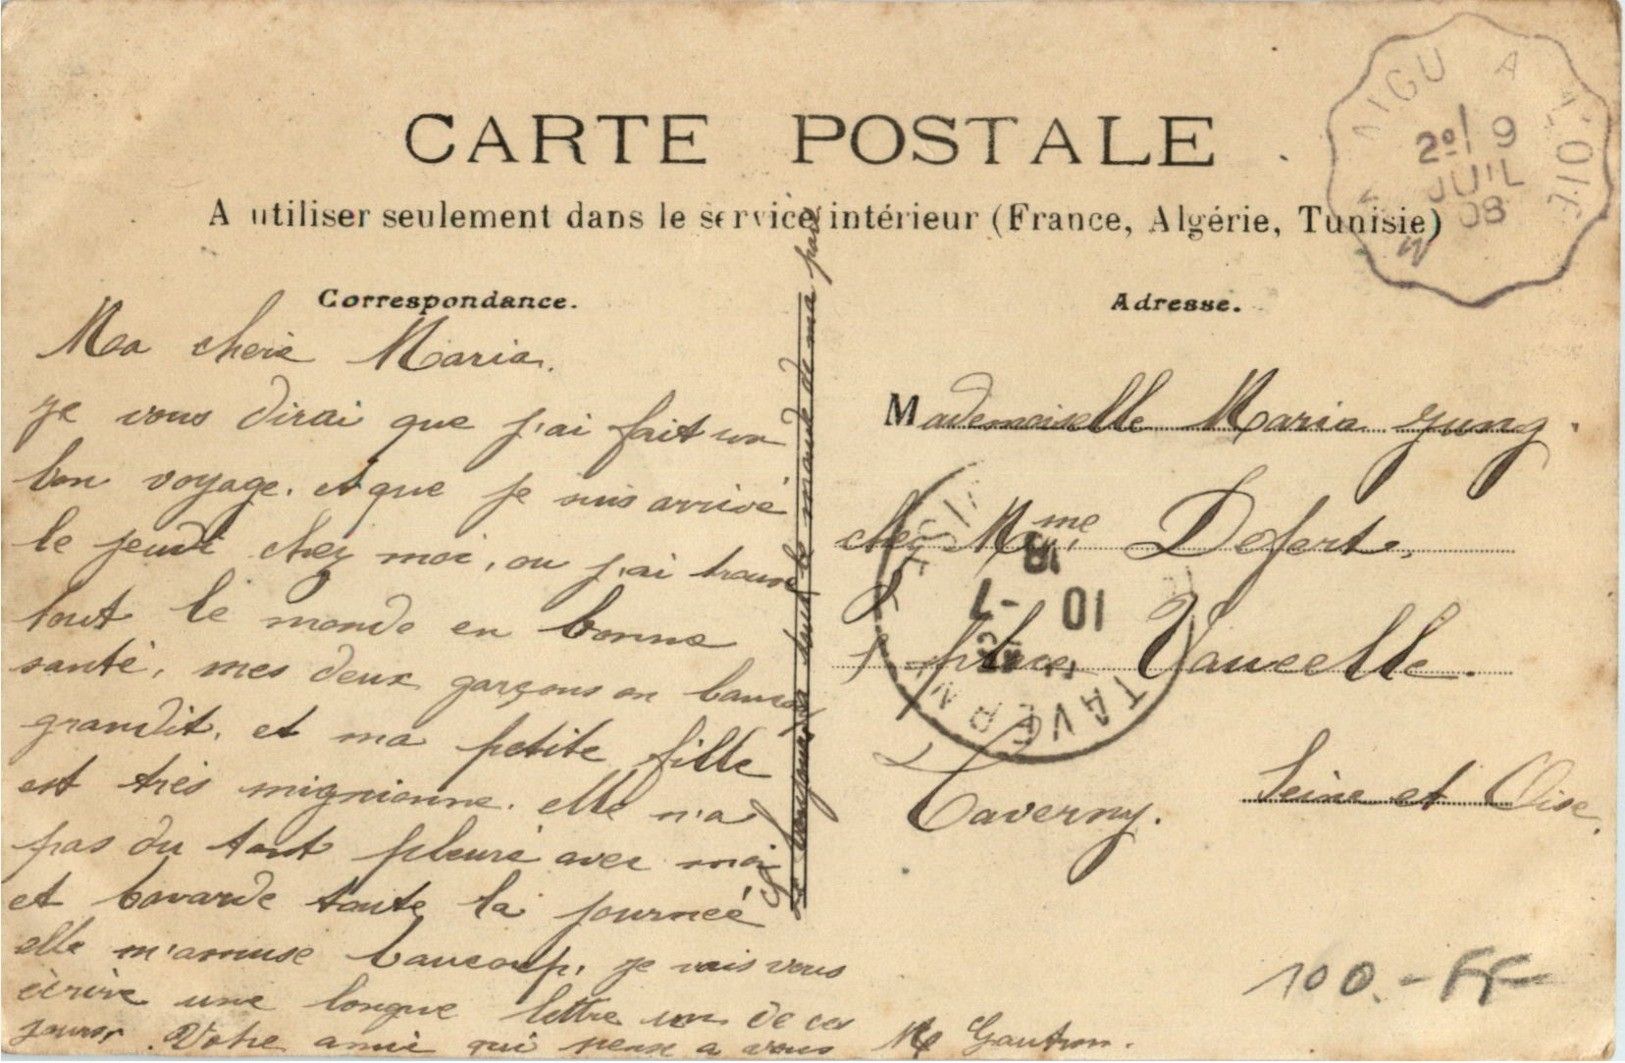 CARTE POSTALE
A utiliser seulement dans le service intérieur (France, Algérie, Tunisie)
AIGU A
2º 9
JUIL
08
Correspondance.
Ma cherie Maria.
je vous dirai que j'ai fait un
bon voyage. et que je suis arrivé
le jeudi chez moi, ou j'ai trouvé
tout le monde en bonne
santé, mes deux garçons on
grandit. et ma petite fille
est très mignionne. elle n'a
pas du tout pleuré avec moi
et bavarde toute la journeé
elle m'amuse baucoup, je vais vous
écrire une longue lettre un de ces
jours. Votre amie qui pense a vous
Me Gautron.
tout le monde de ma part
Adresse.
Mademoiselle Maria Jung.
chez Mme Defert.
place Vaucelle.
Taverny.
Seine et Oise.
TAVERNY
18
10 -7
100.- FF